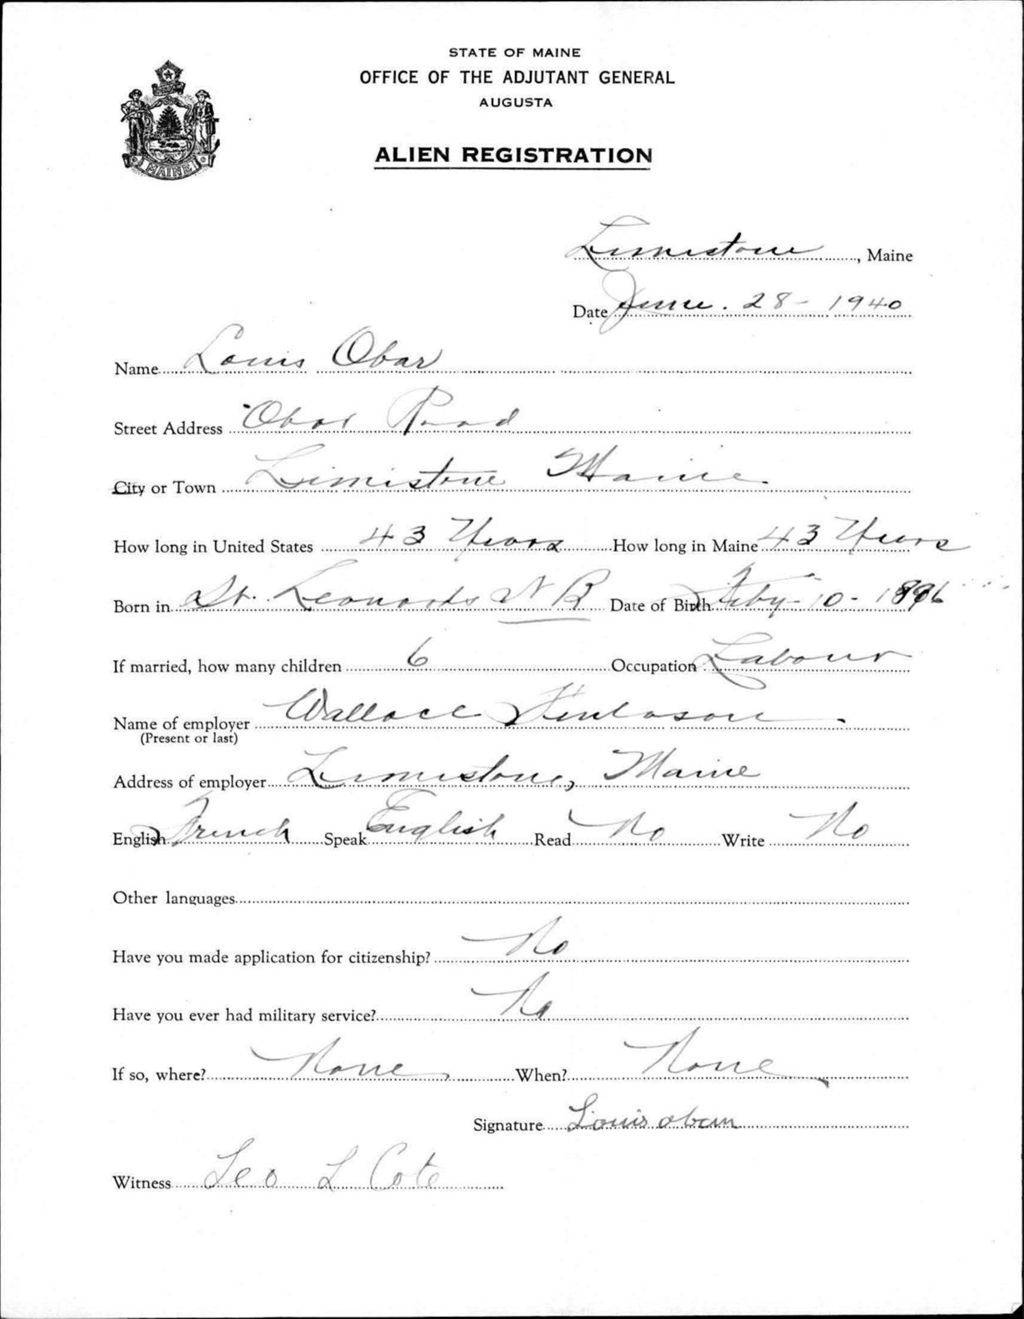 STATE OF MAINE
OFFICE OF THE ADJUTANT GENERAL
AUGUSTA
ALIEN REGISTRATION
MAINE
Limestone, Maine
Date June. 28 - 1940
Name Louis Obar
Street Address Obar Road
City or Town Limistone Maine
How long in United States 43 Years How long in Maine 43 Years
Born in St. Leonards N B Date of Birth Feby - 10 - 1896
If married, how many children 6 Occupation Labour
Name of employer Wallace
(Present or last)
Address of employer Limestone, Maine
English French Speak English Read No Write No
Other languages
Have you made application for citizenship? No
Have you ever had military service? No
If so, where? None When? None
Signature Louis obar
Witness Leo L Cote